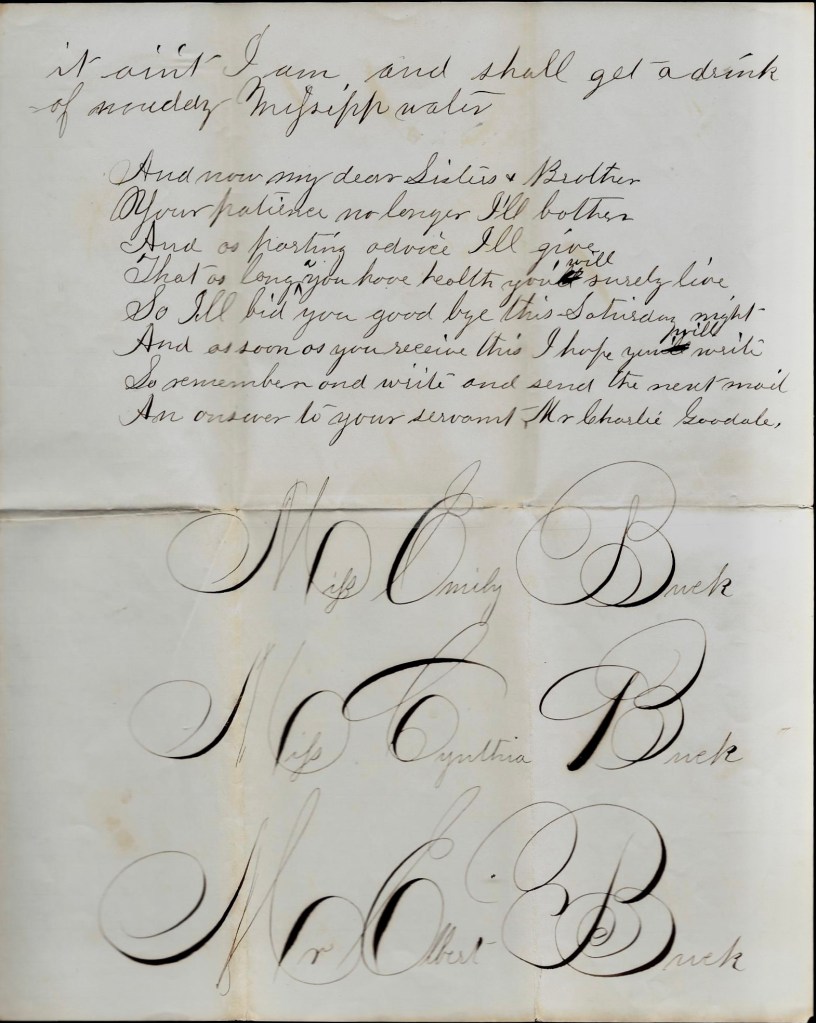 it aint I am and shall get a drink
of muddy Missipp water
And now my dear Sisters & Brother
Your patience no longer I'll bother
And as parting advice I'll give
That as long as you have health you will surely live
So I'll bid you good bye this Saturday night
And as soon as you receive this I hope you will write
So remember and write and send the next mail
An answer to your servant Mr Charlie Goodale.
Miss Emily Buck
Miss Cynthia Buck
Mr Elbert Buck